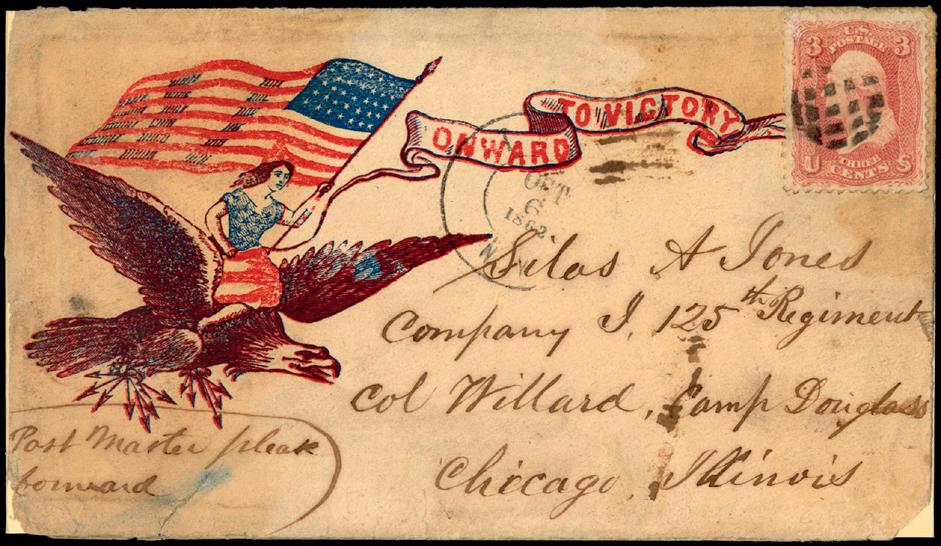 ONWARD TO VICTORY
3 U.S. 3
POSTAGE
U THREE S
CENTS
OCT
6
1862
N.Y.
Silas A Jones
Company I, 125th Regiment
Col Willard, Camp Douglass
Chicago, Illinois
Post Master pleas
forward